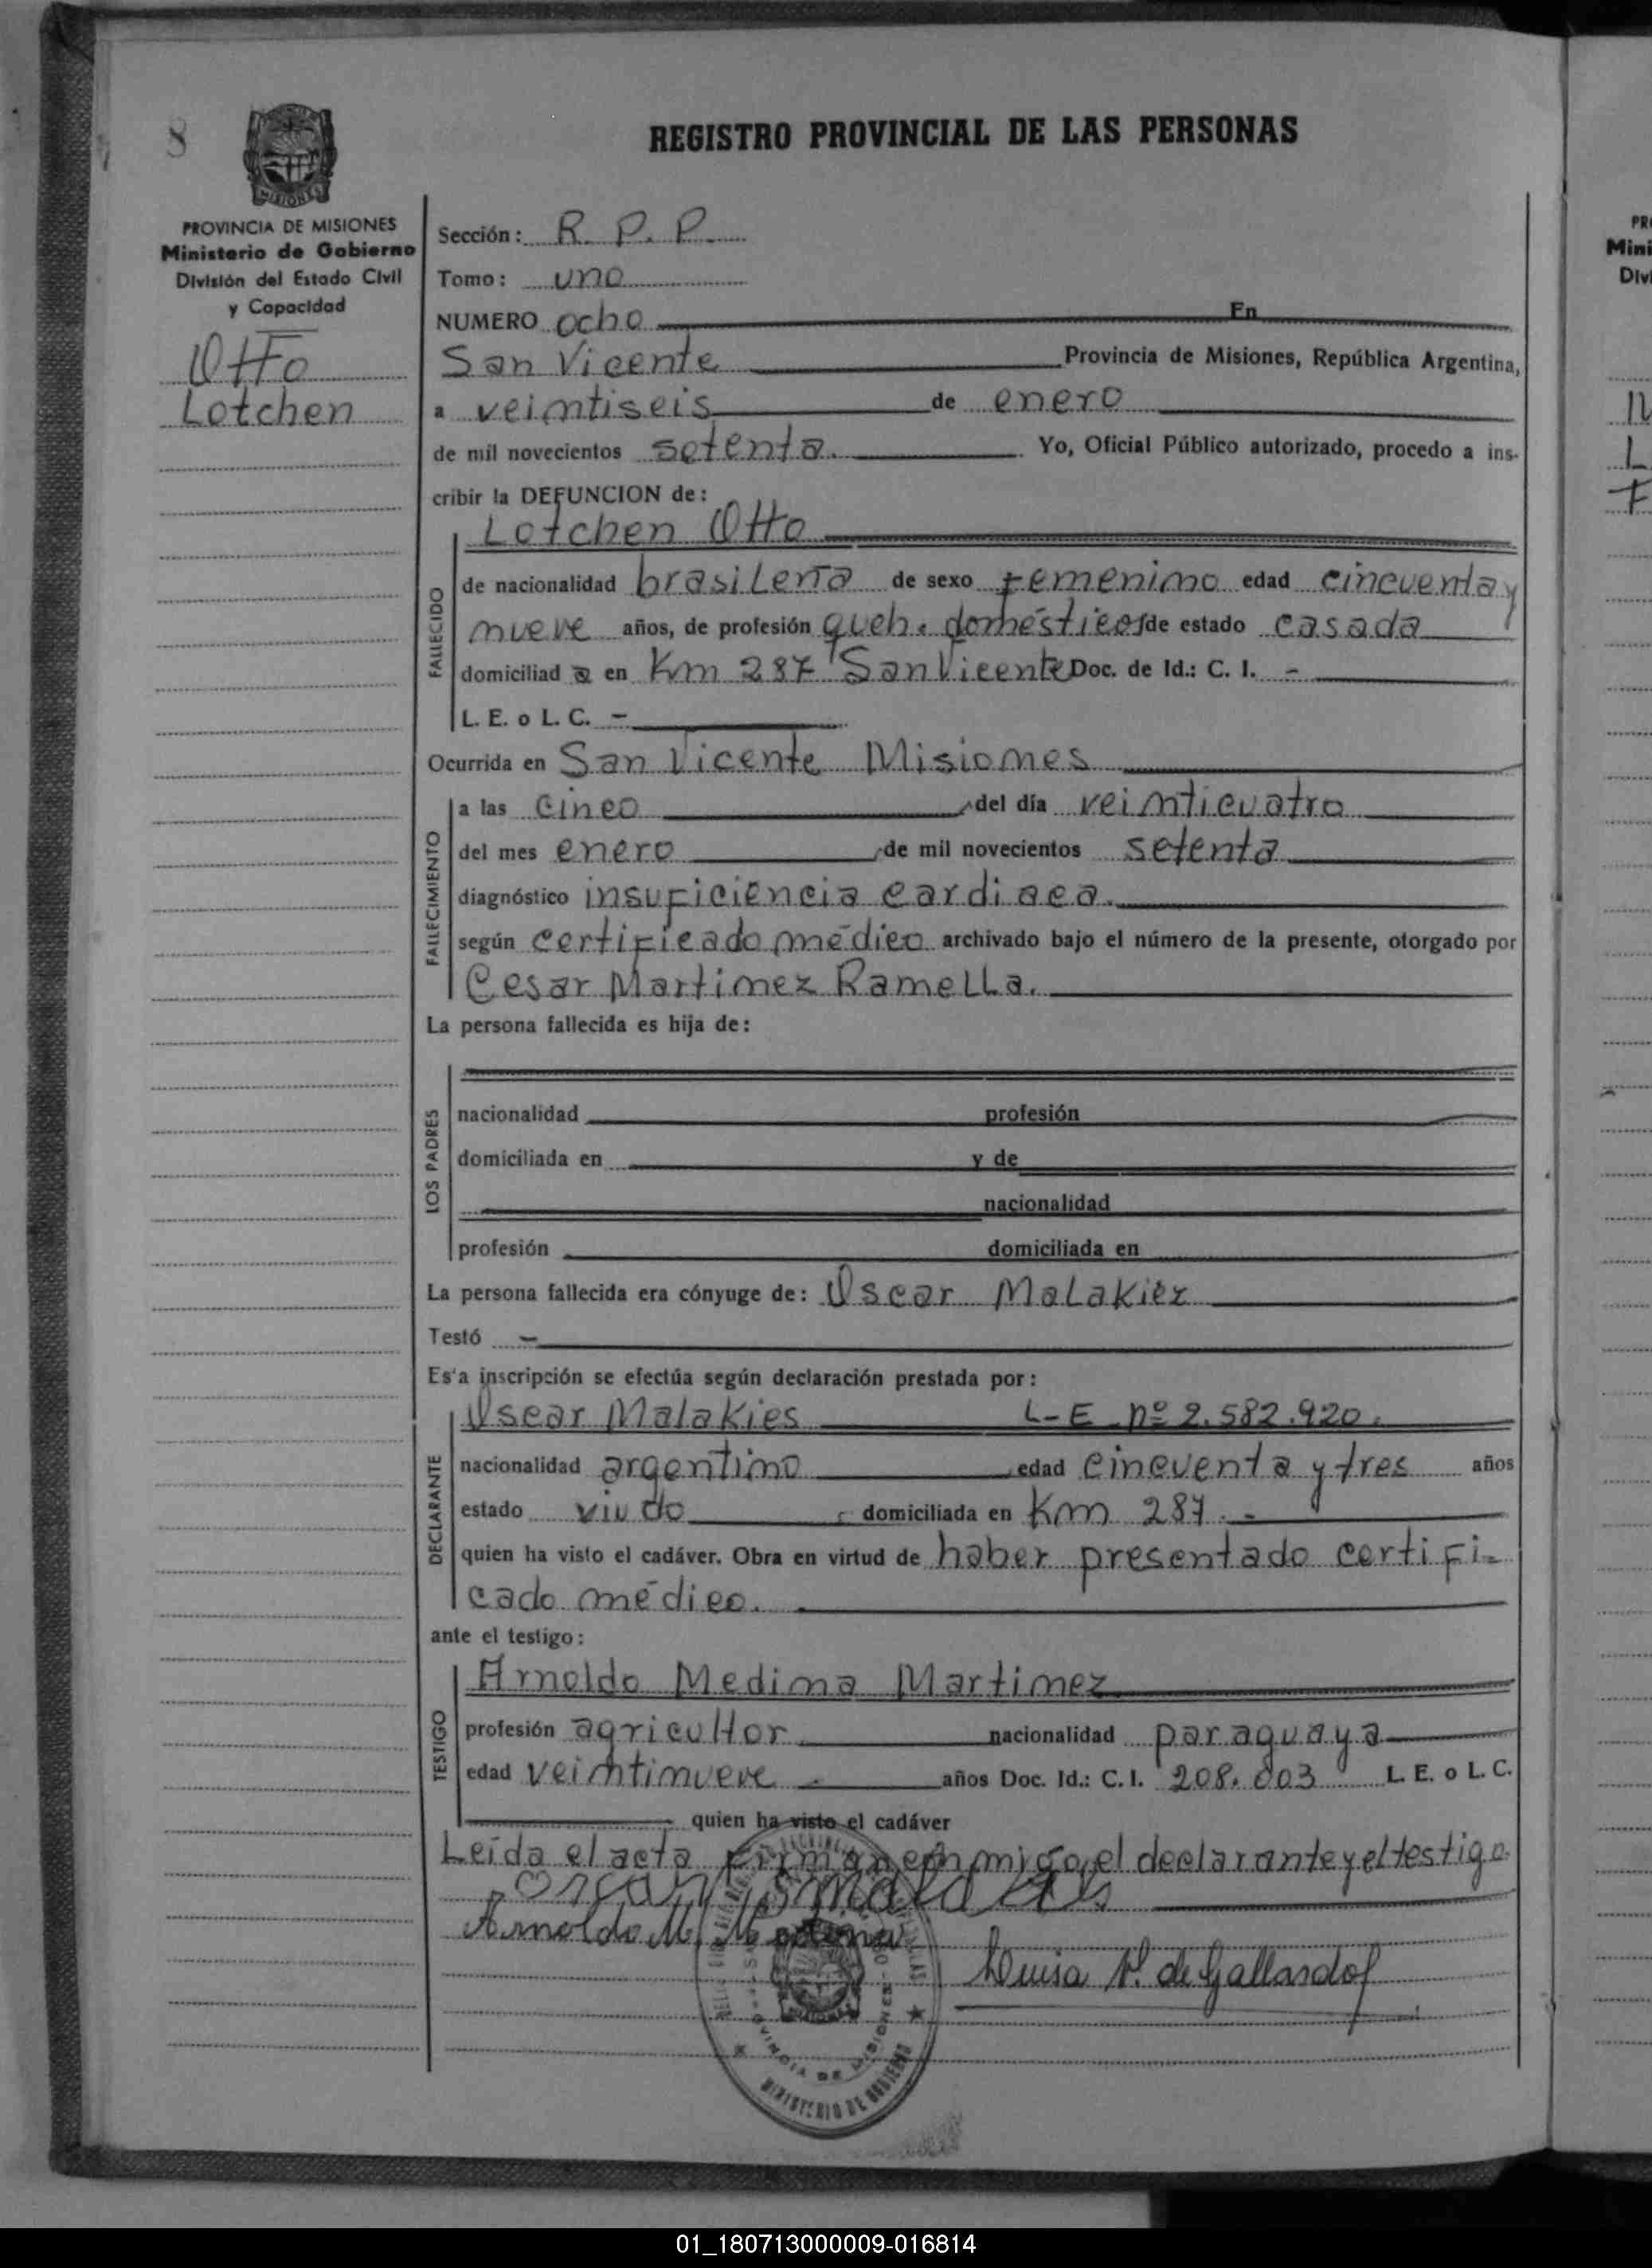 8
REGISTRO PROVINCIAL DE LAS PERSONAS
MISIONES
PROVINCIA DE MISIONES
Ministerio de Gobierno
División del Estado Civil
y Capacidad
Otto
Lotchen
Sección: R. P. P.
Tomo: uno
NUMERO ocho En
San Vicente Provincia de Misiones, República Argentina,
a veintiseis de enero
de mil novecientos setenta. Yo, Oficial Público autorizado, procedo a ins-
cribir la DEFUNCION de:
FALLECIDO
Lotchen Otto
de nacionalidad brasileña de sexo femenino edad cincuenta y
nueve años, de profesión queh. domésticos de estado casada
domiciliad a en Km 287 San Vicente Doc. de Id.: C. I. -
L. E. o L. C. -
Ocurrida en San Vicente Misiones
FALLECIMIENTO
a las cinco del día veinticuatro
del mes enero de mil novecientos setenta
diagnóstico insuficiencia cardiaca.
según certificado médico archivado bajo el número de la presente, otorgado por
Cesar Martinez Ramella.
La persona fallecida es hija de:
LOS PADRES
nacionalidad profesión
domiciliada en y de
nacionalidad
profesión domiciliada en
La persona fallecida era cónyuge de: Oscar Malakiez
Testó -
Es'a inscripción se efectúa según declaración prestada por:
DECLARANTE
Oscar Malakies L-E nº 2.582.920.
nacionalidad argentino edad cincuenta y tres años
estado viudo domiciliada en Km 287. -
quien ha visto el cadáver. Obra en virtud de haber presentado certifi-
cado médico.
ante el testigo:
TESTIGO
Arnoldo Medina Martinez
profesión agricultor nacionalidad paraguaya
edad veintinueve años Doc. Id.: C. I. 208.003 L. E. o L. C.
quien ha visto el cadáver
Leída el acta firman conmigo, el declarante y el testigo.
Oscar Malakies
Arnoldo M. Medina
Luisa de Gallardo
PROVINCIA DE MISIONES
MINISTERIO DE GOBIERNO
PR
Mini
Div
01_180713000009-016814